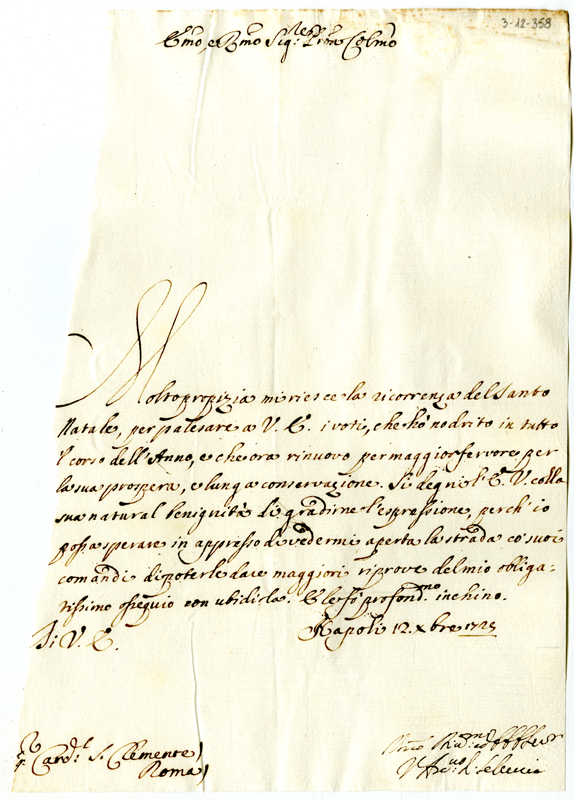 3-12-358
Emo, e Rmo Sig:re Pron Colmo
Molto propizia mi riesce la ricorrenza del Santo
Natale, per palesare a V. E. i voti, che hò nodrito in tutto
l'corso dell'Anno, e che ora rinuovo per maggior fervore, per
la sua prospera, e lunga conservazione. Si degni l'E. V. colla
sua natural benignità di gradirne l'espressione, perch'io
possa sperare in appresso di vedermi aperta la strada co' suoi
comandi di poterle dare maggiori riprove del mio obliga-
tissimo ossequio con ubidirla. E le fò profond.mo inchino.
Di V. E. Napoli 12. Xbre 1725
Card.l S. Clemente)
Roma)